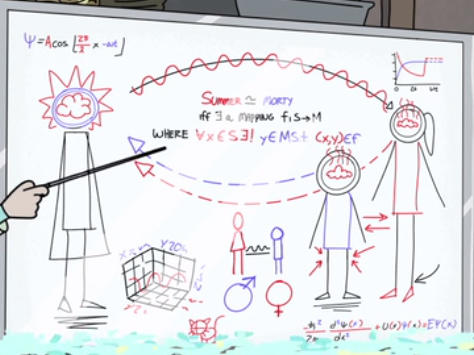 Ψ=Acos[2π/λ x -ωt]
SUMMER ≃ MORTY
iff ∃ a MAPPING f:S→M
WHERE ∀x∈S∃! y∈M S.t (x,y)∈f
0 2t
Y 20%
+U(x)Ψ(x)=EΨ(x)